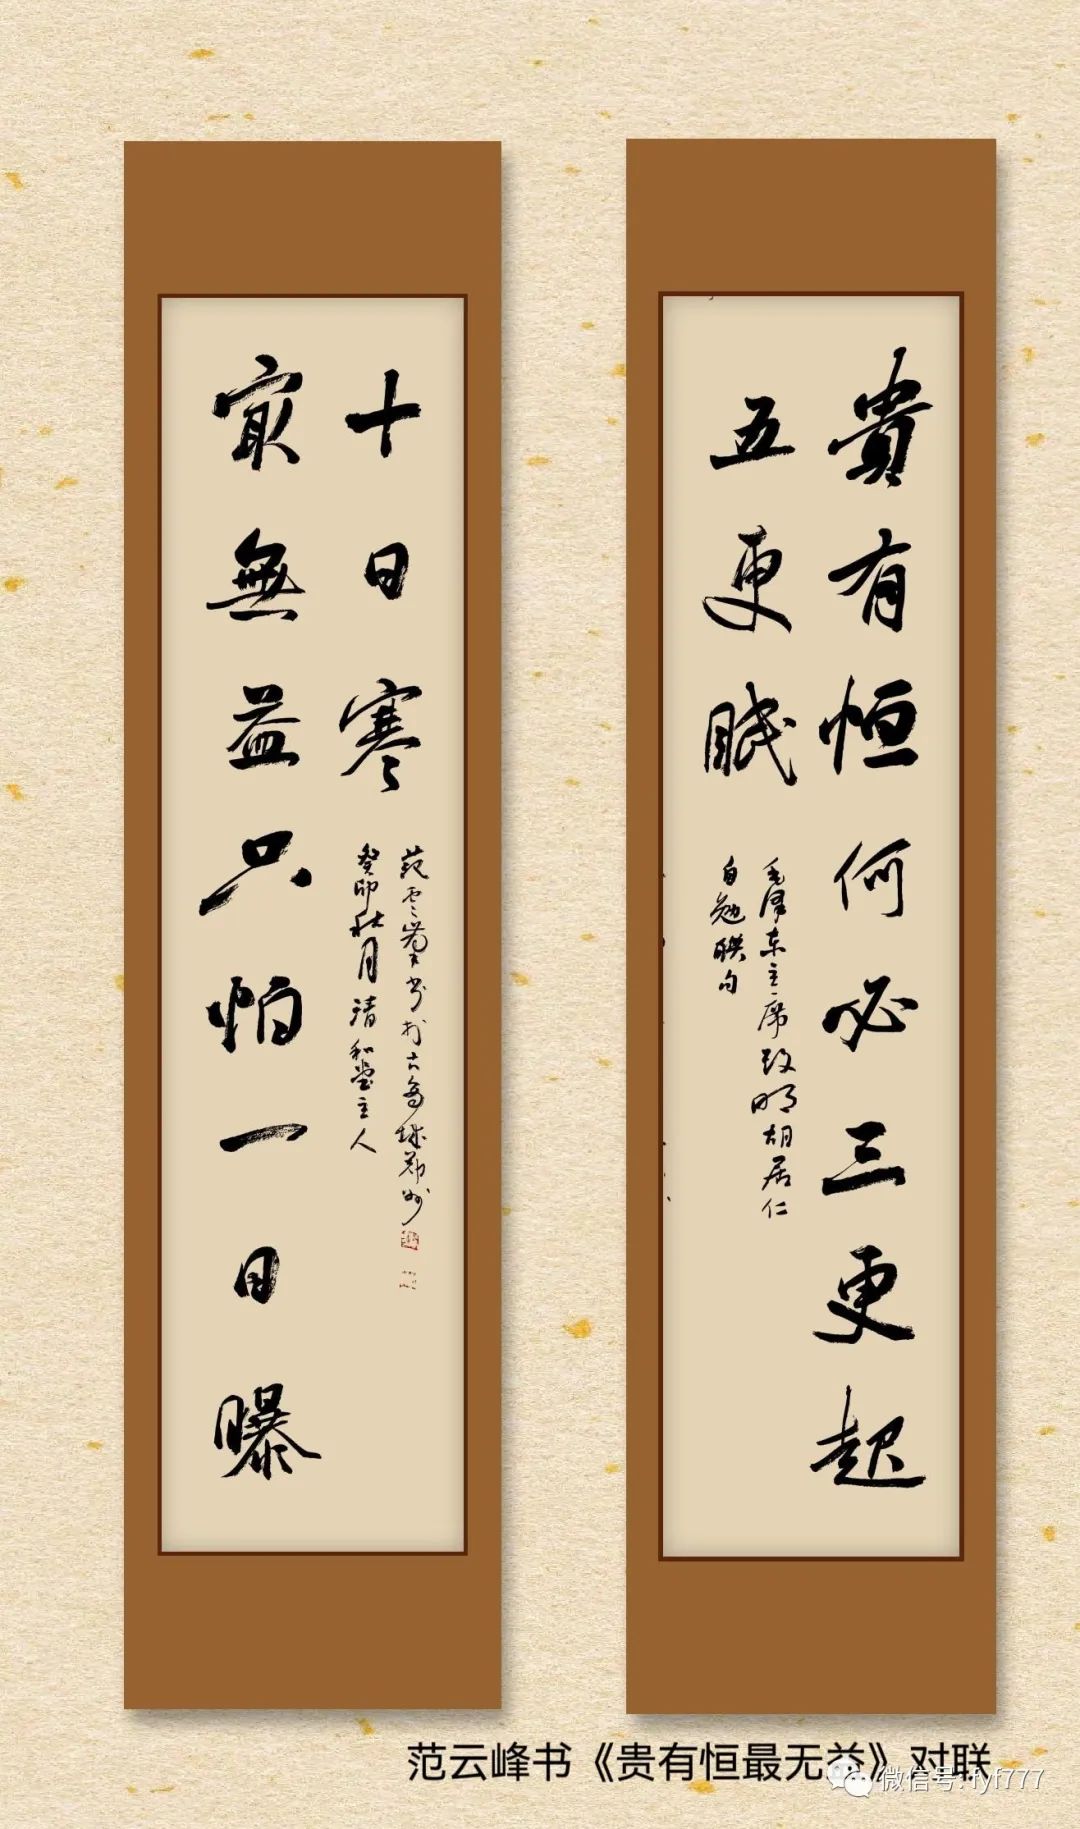 貴有恒何必三更起
五更眠
毛泽东主席改明胡居仁
自勉联句
十日寒
冣無益只怕一日曝
范云峯书于古商城郑州
癸卯秋月清和堂主人
范云峰书《贵有恒最无益》对联
微信号:fyf777